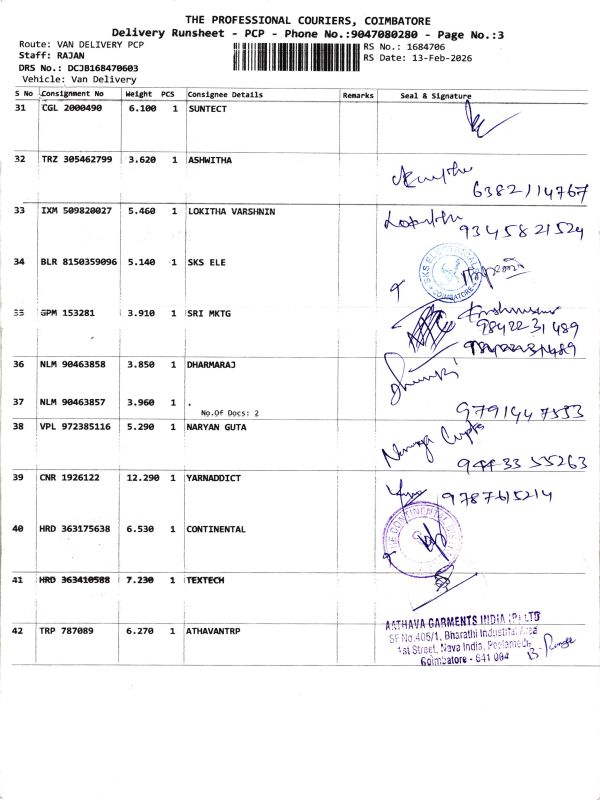 THE PROFESSIONAL COURIERS, COIMBATORE
Delivery Runsheet - PCP - Phone No.:9047080280 - Page No.:3
Route: VAN DELIVERY PCP RS No.: 1684706
Staff: RAJAN RS Date: 13-Feb-2026
DRS No.: DCJB168470603
Vehicle: Van Delivery
S No Consignment No Weight PCS Consignee Details Remarks Seal & Signature
31 CGL 2000490 6.100 1 SUNTECT
32 TRZ 305462799 3.620 1 ASHWITHA
6382114767
33 IXM 509820027 5.460 1 LOKITHA VARSHNIN
9345821524
34 BLR 8150359096 5.140 1 SKS ELE
SKS ELECTRICAL
COIMBATORE
35 GPM 153281 3.910 1 SRI MKTG
98422 31489
36 NLM 90463858 3.850 1 DHARMARAJ
37 NLM 90463857 3.960 1 .
No.Of Docs: 2
9791447553
38 VPL 972385116 5.290 1 NARYAN GUTA
Gupta
94433 55263
39 CNR 1926122 12.290 1 YARNADDICT
9787615214
40 HRD 363175638 6.530 1 CONTINENTAL
CONTINENTAL
41 HRD 363410588 7.230 1 TEXTECH
42 TRP 787089 6.270 1 ATHAVANTRP
AATHAVA GARMENTS INDIA (P) LTD
SF No.405/1, Bharathi Industrial Area
1st Street, Nava India, Peelamedu
Coimbatore - 641 004